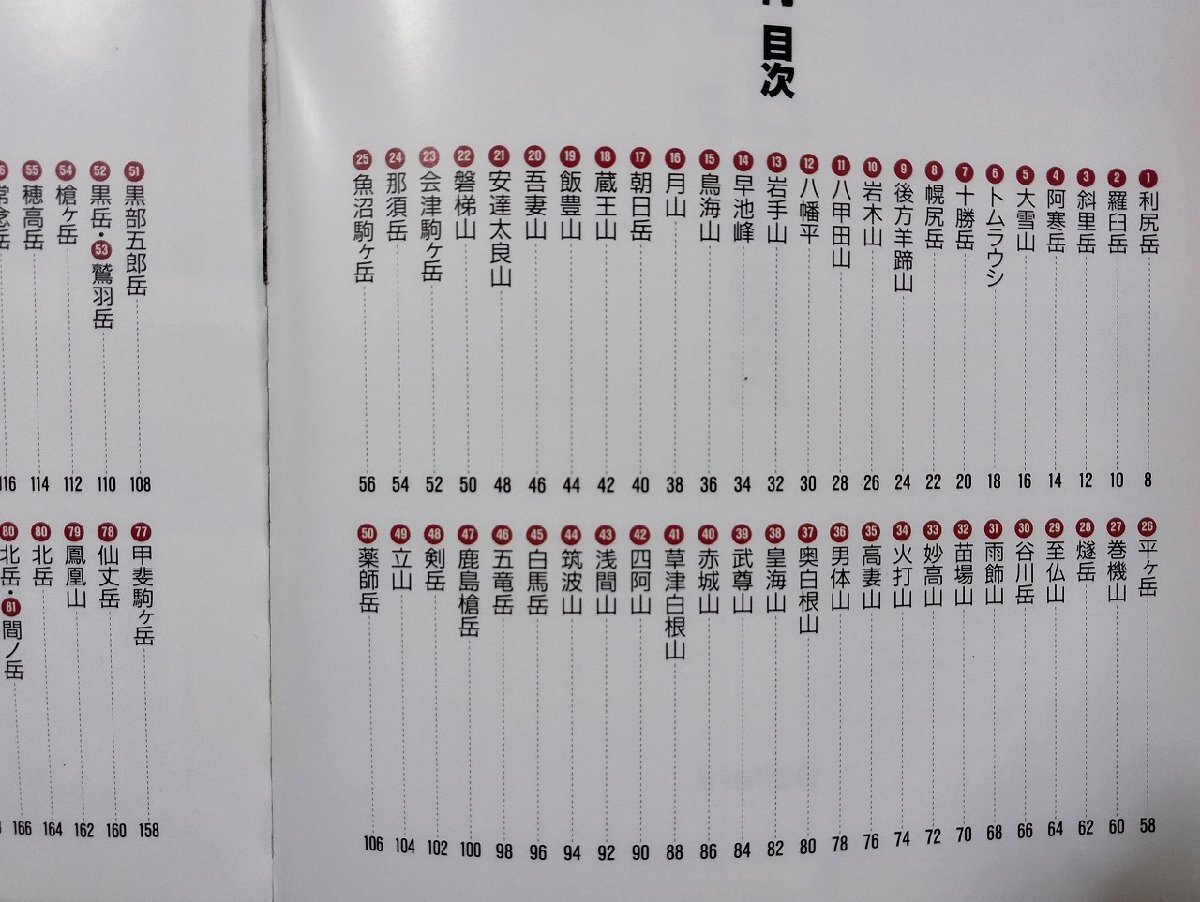 目次
1 利尻岳 8
2 羅臼岳 10
3 斜里岳 12
4 阿寒岳 14
5 大雪山 16
6 トムラウシ 18
7 十勝岳 20
8 幌尻岳 22
9 後方羊蹄山 24
10 岩木山 26
11 八甲田山 28
12 八幡平 30
13 岩手山 32
14 早池峰 34
15 鳥海山 36
16 月山 38
17 朝日岳 40
18 蔵王山 42
19 飯豊山 44
20 吾妻山 46
21 安達太良山 48
22 磐梯山 50
23 会津駒ヶ岳 52
24 那須岳 54
25 魚沼駒ヶ岳 56
26 平ヶ岳 58
27 巻機山 60
28 燧岳 62
29 至仏山 64
30 谷川岳 66
31 雨飾山 68
32 苗場山 70
33 妙高山 72
34 火打山 74
35 高妻山 76
36 男体山 78
37 奥白根山 80
38 皇海山 82
39 武尊山 84
40 赤城山 86
41 草津白根山 88
42 四阿山 90
43 浅間山 92
44 筑波山 94
45 白馬岳 96
46 五竜岳 98
47 鹿島槍岳 100
48 剣岳 102
49 立山 104
50 薬師岳 106
51 黒部五郎岳 108
52 黒岳・53 鷲羽岳 110
54 槍ヶ岳 112
55 穂高岳 114
常念岳 116
77 甲斐駒ヶ岳 158
78 仙丈岳 160
79 鳳凰山 162
80 北岳 164
80 北岳・81 間ノ岳 166